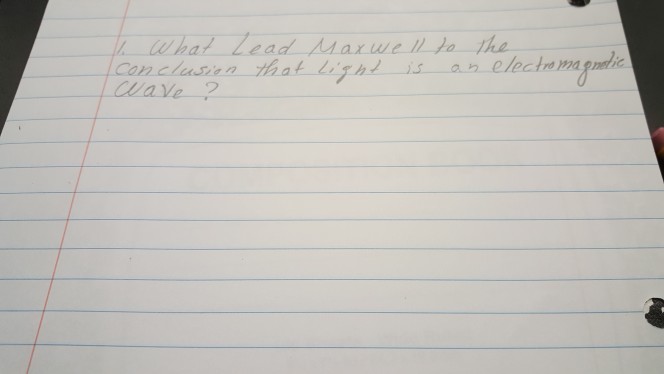 1. What Lead Maxwell to the
conclusion that light is an electromagnetic
wave ?